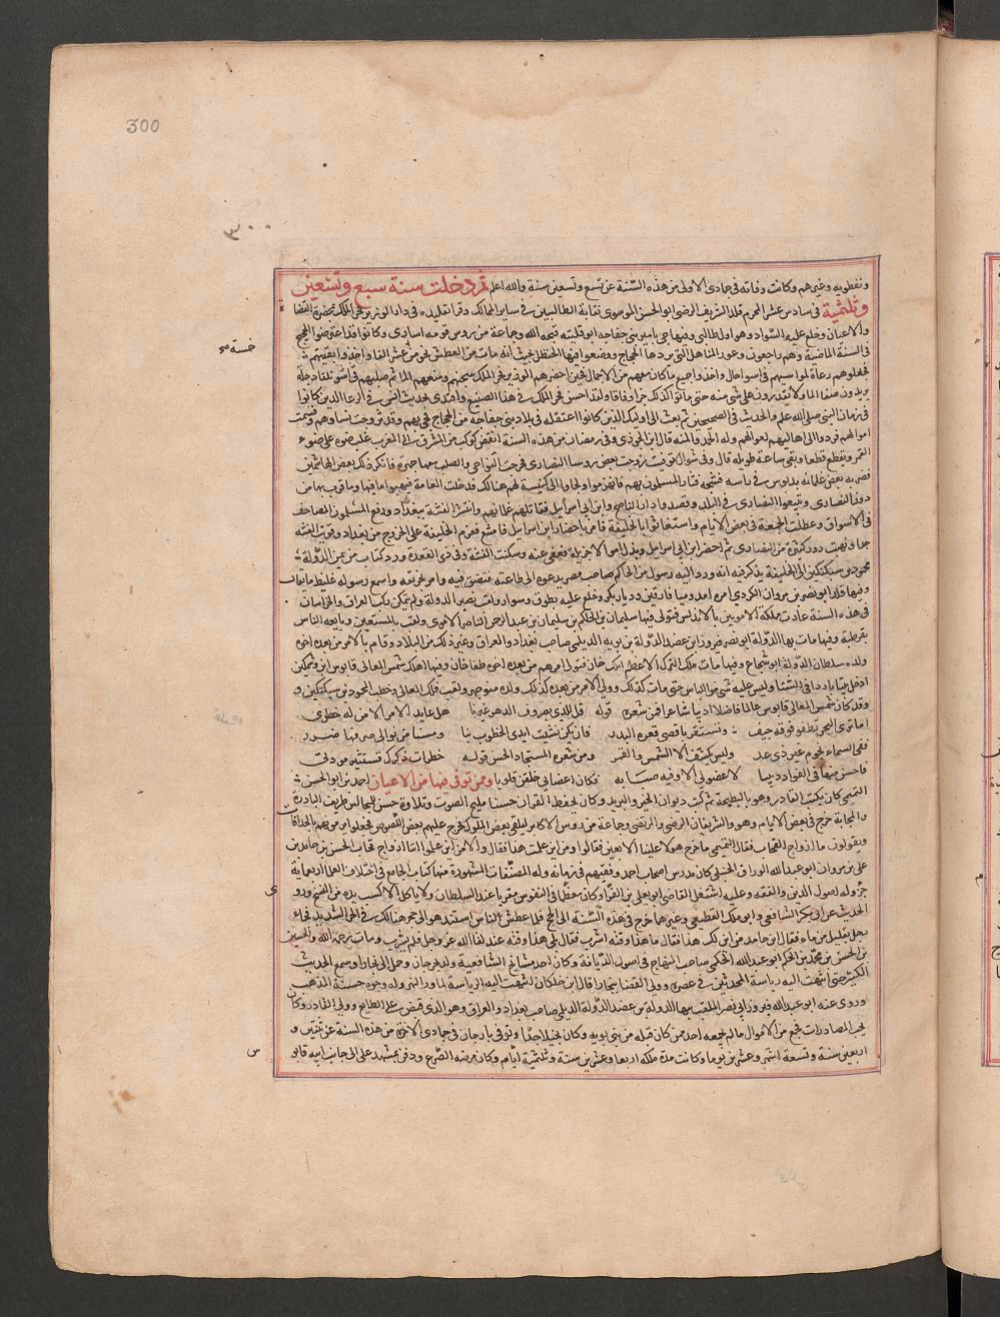 300
٣٠٠
ونفطويه وغيرهم وكانت وفاته في جمادى الاولى من هذه السنة عن تسع وتسعين سنة والله اعلم ثم دخلت سنة سبع وتسعين
وثلثمية في سادس عشر المحرم قلد الشريف الرضي ابو الحسن الموسوي نقابة الطالبيين في ساير الممالك وقرا تقليده في دار الوزير فخر الملك بمحضر القضاة
والاعيان وخلع عليه السواد وهو اول طالبي وفيها جي بامير بني خفاجه ابو قلنبه قبحه الله وجماعة من روس قومه اسارى وكانوا قد اعترضوا الحجيج
في السنة الماضية وهم راجعون وعوروا المناهل التي يردها الحجاج ووضعوا فيها الحنظل بحيث انه مات من العطش نحو من عشر الفا واخذوا بقيتهم
خمسة صح
فجعلوهم رعاة لمواشيهم في اسوا حال واخذوا جميع ما كان معهم من الاحمال فحين احضرهم الوزير فخر الملك سجنهم ومنعهم الما ثم صلبهم
يريدون صفا الما ولا يقدرون على شي منه حتى ماتوا كذلك جزا وفاقا ولقد احسن فخر الملك في هذا الصنيع واقتدى بحديث انس في الرعا الذين كانوا
في زمان النبي صلى الله عليه والحديث في الصحيحين ثم بعث الى اوليك الذين كانوا اعتقله في بلاد بني خفاجه من الحجاج فجي بهم وقد تزوجت نساوهم وقسمت
اموالهم فردوا الى اهاليهم اموالهم وله الحمد والمنه قال ابن الجوزي وفي رمضان من هذه السنة انقض كوكب من المشرق الى المغرب غلب ضوه على ضوء
القمر وتقطع قطعا وبقي ساعة طويله قال وفي شوال توفيت زوجة بعض روسا النصارى فخرجت النوايح والصلب معها جهرة فانكر ذلك بعض الهاشميين
فضربه بعض غلمانه بدبوس في راسه فشجه فثار المسلمون بهم فانهزموا ولجاوا الى كنيسة لهم هنالك فدخلت العامة فنهبوا ما فيها وما قرب منها من
دور النصارى وتتبعوا النصارى في البلد وقصدوا دار الناصح وابن ابي اسرايل فقاتلهم غلمانهم وانتشر الفتنة ببغداد ورفع المسلمون المصاحف
في الاسواق وعطلت الجمعة في بعض الايام واستغاثوا بالخليفة فامر باحضار ابن ابي اسرايل فامتنع فعزم الخليفة على الخروج من بغداد وقويت الفتنة
جدا ونهبت دور كثيرة من النصارى ثم احضر ابن ابي اسرايل وبذل اموالا جزيلة فعفي عنه وسكنت الفتنة وفي ذي القعدة ورد كتاب من يمين الدولة
محمود بن سبكتكين الى الخليفة يذكر فيه انه ورد اليه رسول من الحاكم صاحب مصر يدعوه الى طاعته فبصق فيه وامر بحرقه واسمع رسوله غليظ ما يقال
وفيها قلد ابو نصر بن مروان الكردي امرة امد وميا فارقين وديار بكر وخلع عليه بطوق وسوارين ولقب نصير الدولة ولم يتمكن ركب العراق والخراسان
في هذه السنة عادت مملكة الامويين بالاندلس فتولى فيها سليمان بن الحكم بن سليمان بن عبد الرحمن الناصر الاموي ولقب بالمستعين وبايعه الناس
بقرطبة وفيها مات بها الدولة ابو نصر فيروز ابن عضد الدولة بن بويه الديلمي صاحب بغداد والعراق وغير ذلك من البلاد وقام بالامر من بعده
ولده سلطان الدولة ابو شجاع وفيها مات ملك الترك الاعظم ايلك خان فتولى امرهم من بعده اخوه طغاخان وفيها هلك شمس المعالي قابوس ابن وشمكين
ادخل بيتا باردا في الشتا وليس عليه شي من اللباس حتى مات كذلك وولي الامر من بعده كذلك ولده منوجهر ولقب فلك المعالي وخطب لمحمود بن سبكتكين و
وقد كان شمس المعالي قابوس عالما فاضلا اديبا شاعرا فمن شعره قوله قل للذي بصروف الدهر عيرنا هل عاند الدهر الا من له خطر
اما ترى البحر تطفو فوقه جيف وتستقر باقصى قعره الدرر فان تكن نشبت ايدي الخطوب بنا ومسنا من توالي صرفها ضرر
ففي السماء نجوم غير ذي عدد وليس يكسف الا الشمس والقمر ومن شعره المستجاد الحسن قوله خطرات ذكرك تستثير مودتي
فاحس منها في الفواد دبيبا لا عضو لي الا وفيه صبابه فكان اعضائي خلقن قلوبا وممن توفي فيها من الاعيان احمد بن ابو الحسن
وكان يكتب للقادر وهو بالبطيحة ثم كتب ديوان الخبر والبريد وكان يحفظ القران حسنا مليح الصوت وتلاوة حسن المجالس ظريف النادرة
والمجانة خرج في بعض الايام وهو والشريفان الرضي والمرتضى وجماعة من روس الاكابر لتلقي بعض الملوك فخرج عليهم بعض اللصوص فجعلوا يرمونهم بالحراقات
ويقولون يا ازواج القحاب فقال البتي ما خرج هولا علينا الا بعين فقالوا ومن اين علمت هذا فقال والا من اين علموا اننا ازواج قحاب الحسن بن حامد بن
علي بن مروان ابو عبد الله الوراق الحنبلي كان مدرس اصحاب احمد وفقيههم في زمانه وله المصنفات المشهورة منها كتاب الجامع في اختلاف العلما اربعماية
جزء وله اصول الدين والفقه وعليه اشتغل القاضي ابو يعلى بن الفرا وكان معظما في النفوس مقربا عند السلطان ولا ياكل الا من كسب يده من النسخ وروى
الحديث عن ابي بكر الشافعي وابن مالك القطيعي وغيرهما خرج في هذه السنة الى الحج فلما عطش الناس استند هو الى حجر هنالك في الحر الشديد فجاء
رجل بقليل من ماء فقال ابن حامد من اين لك هذا فقال ما هذا وقته اشرب فقال بلى هذا وقته عند لقا الله عز وجل فلم يشرب ومات رحمه الله والحسين
بن الحسن بن محمد بن الحكم ابو عبد الله الحكمي صاحب المنهاج في اصول الديانة وكان احد مشايخ الشافعية ولد بجرجان وحمل الى بخارا وسمع الحديث
الكثير حتى انتهت اليه رياسة المحدثين في عصره وولي القضا ببخارا قال ابن خلكان انتهت اليه الرياسة بما ورا النهر وله وجوه حسنة في المذهب
وروى عنه ابو عبد الله فيروز ابي نصر الملقب ببها الدولة بن عضد الدولة الديلمي صاحب بغداد والعراق وهو الذي قبض على الطايع وولى القادر وكان
يحب المصادرات فجمع من الاموال ما لم يجمعه احد ممن كان قبله من بني بويه وكان بخيلا جدا وتوفي بارجان في جمادى الاخرة من هذه السنة عن ثنتين و
اربعين سنة وتسعة اشهر وعشرين يوما وكانت مدة ملكه اربعا وعشرين سنة وثلثية ايام وكان مرضه الصرع ودفن بمشهد علي الى جانب ابيه قابو
س